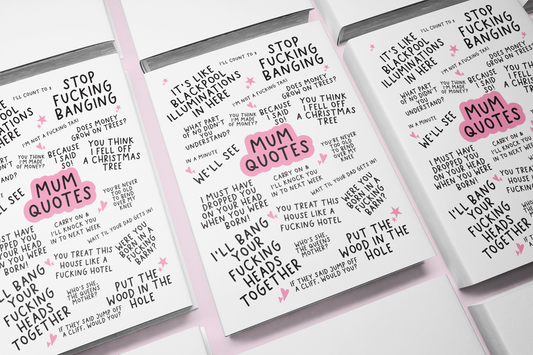 IT'S LIKE
BLACKPOOL
ILLUMINATIONS
IN HERE
I'LL COUNT TO 3
STOP
FUCKING
BANGING
I'M NOT A FUCKING TAXI
WHAT PART
OF NO DIDN'T
YOU
UNDERSTAND?
DO YOU THINK
I'M MADE
OF MONEY?
BECAUSE
I SAID
SO!
DOES MONEY
GROW ON TREES?
YOU THINK
I FELL OFF
A CHRISTMAS
TREE
IN A MINUTE
WE'LL SEE
MUM
QUOTES
YOU'RE NEVER
TOO OLD
TO BEND
OVER
MY KNEE
I MUST HAVE
DROPPED YOU
ON YOUR HEAD
WHEN YOU WERE
BORN!
CARRY ON &
I'LL KNOCK YOU
IN TO NEXT WEEK
WAIT TIL YOUR DAD GETS IN!
WERE YOU
BORN IN A
FUCKING
BARN?
I'LL BANG
YOUR
FUCKING
HEADS
TOGETHER
YOU TREAT THIS
HOUSE LIKE A
FUCKING HOTEL
WHO'S SHE,
THE QUEENS
MOTHER?
PUT THE
WOOD IN THE
HOLE
IF THEY SAID JUMP OFF
A CLIFF, WOULD YOU?